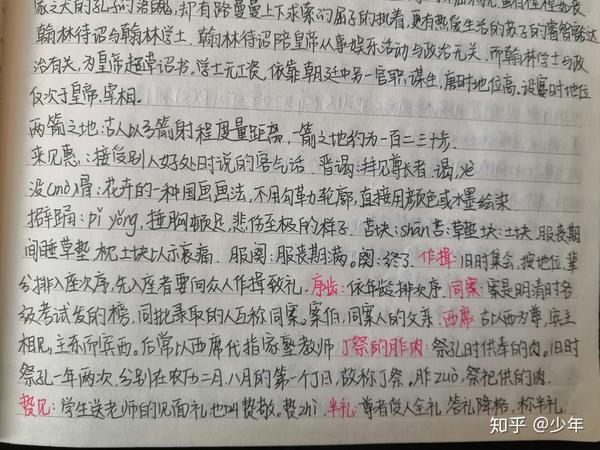 家之犬的孔子的洛魄,却有路曼曼上下求索的屈子的执着,更有热爱生活的苏子的睿智豁达
翰林待诏与翰林学士.翰林待诏陪皇帝从事娱乐活动与政治无关.而翰林学士与政
治有关,为皇帝起草诏书.学士无工资,依靠朝廷中另一官职谋生,唐时地位高,设宴时地位
仅次于皇帝、宰相.
两箭之地:古人以弓箭射程度量距离,一箭之地约为一百二三十步.
来见惠.:接受别人好处时说的客气话.晋谒:拜见尊长者.谒,ye
没(mo)骨:花卉的一种国画画法,不用勾勒轮廓,直接用颜色或水墨绘染.
擗踊:pǐ yǒng,捶胸顿足,悲伤至极的样子.苫块:shān苫:草垫.块:土块.服丧期
间睡草垫,枕土块上以示哀痛.服阕:服丧期满。阕:终了.作揖:旧时集会,按地位,辈
分排入座次序,先入座者要向众人作揖致礼.序齿:依年龄排次序.同案:案是明清时各
级考试发的榜,同批录取的人互称同案。案伯,同案人的父亲.西席:古以西为尊,宾主
相见,主东而宾西。后常以西席代指家塾教师.丁祭的胙肉:祭孔时供奉的肉。旧时
祭孔一年两次.分别在农历二月、八月的第一个丁日,故称丁祭。胙zuò,祭祀供的肉.
贽见:学生送老师的见面礼也叫贽敬。贽zhì.半礼:尊者受人全礼,答礼降格,称半礼.
知乎 @少年